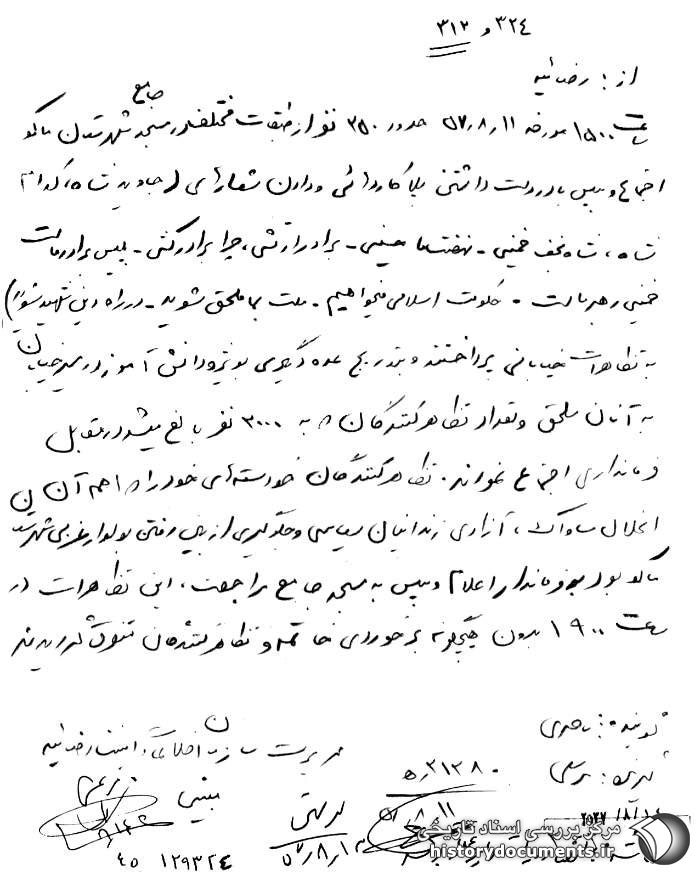 ۳۲٤ و ۳۱۲
از : رضائیه
جامع
ساعت ۱۵۰۰ مورخه ۵۷٫۸٫۱۱ حدود ۳۵۰ نفر از طبقات مختلف در مسجد شهرستان ماکو
اجتماع و سپس با در دست داشتن پلاکاردهائی و دادن شعارهای (جاوید شاه، کدام
شاه، شاه نجف خمینی - نهضت ما حسینی - برادر ارتشی، چرا برادر کشی - پلیس برادر ماست
خمینی رهبر ماست - حکومت اسلامی میخواهیم - ملت بما ملحق شوید - در راه دین شهید شوید)
به تظاهرات خیابانی پرداختند و بتدریج عده دیگری بویژه دانش آموز در مسیر خیابان
به آنان ملحق و تعداد تظاهرکنندگان به ۳۰۰۰ نفر بالغ میشد در مقابل
فرمانداری اجتماع نمودند. تظاهرکنندگان خواسته‌های خود را که اهم آن
انحلال ساواک، آزادی زندانیان سیاسی و جلوگیری از بین رفتن بولوار غربی شهرستان
ماکو بود بفرماندار اعلام و سپس به مسجد جامع مراجعت، این تظاهرات در
ساعت ۱۹۰۰ بدون هیچگونه برخوردی خاتمه و تظاهرکنندگان متفرق گردیدند
گوینده :
گیرنده :
مدیریت سازمان اطلاعات و امنیت رضائیه
۵٫۲۱۳۸۰
۵۷٫۸٫۱۱
۱۲۹۳۲٤
٤۵
مرکز بررسی اسناد تاریخی
historydocuments.ir